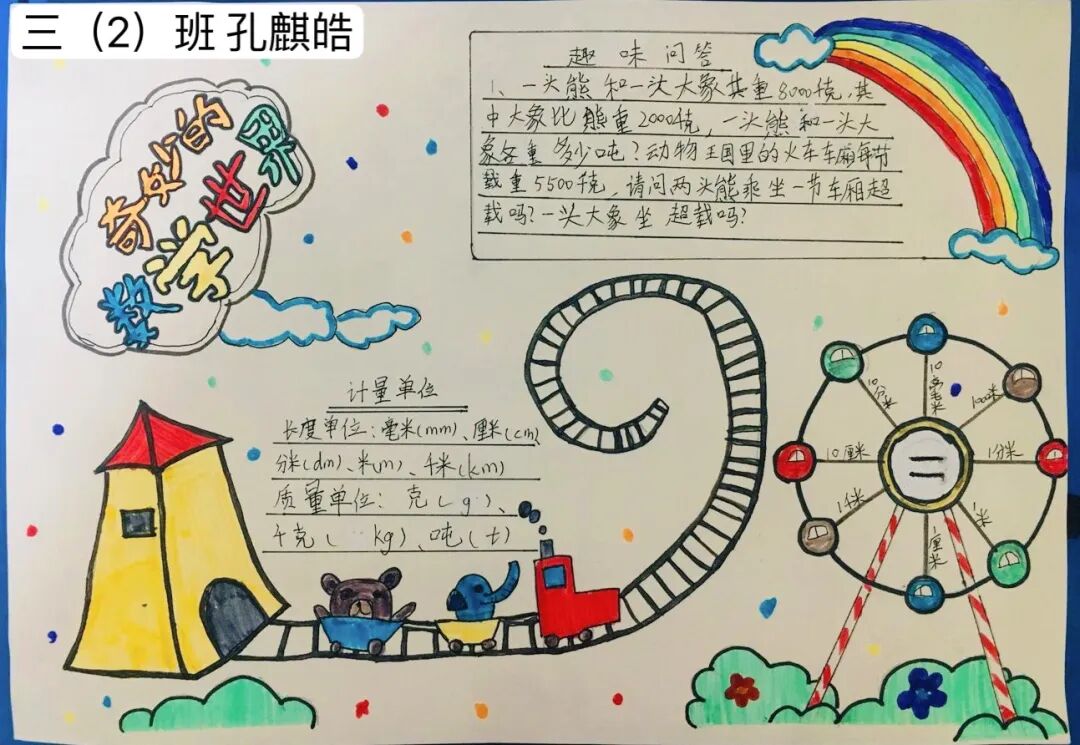 三（2）班 孔麒皓
奇妙的
数学世界
趣味问答
1、一头熊和一头大象共重8000千克，其
中大象比熊重2000千克，一头熊和一头大
象各重多少吨？动物王国里的火车车厢每节
载重5500千克，请问两头熊乘坐一节车厢超
载吗？一头大象坐超载吗？
计量单位
长度单位：毫米(mm)、厘米(cm)、
分米(dm)、米(m)、千米(km)
质量单位：克(g)、
千克(kg)、吨(t)
10分米
10毫米
1000米
10厘米
二
1分米
1千米
1厘米
1米